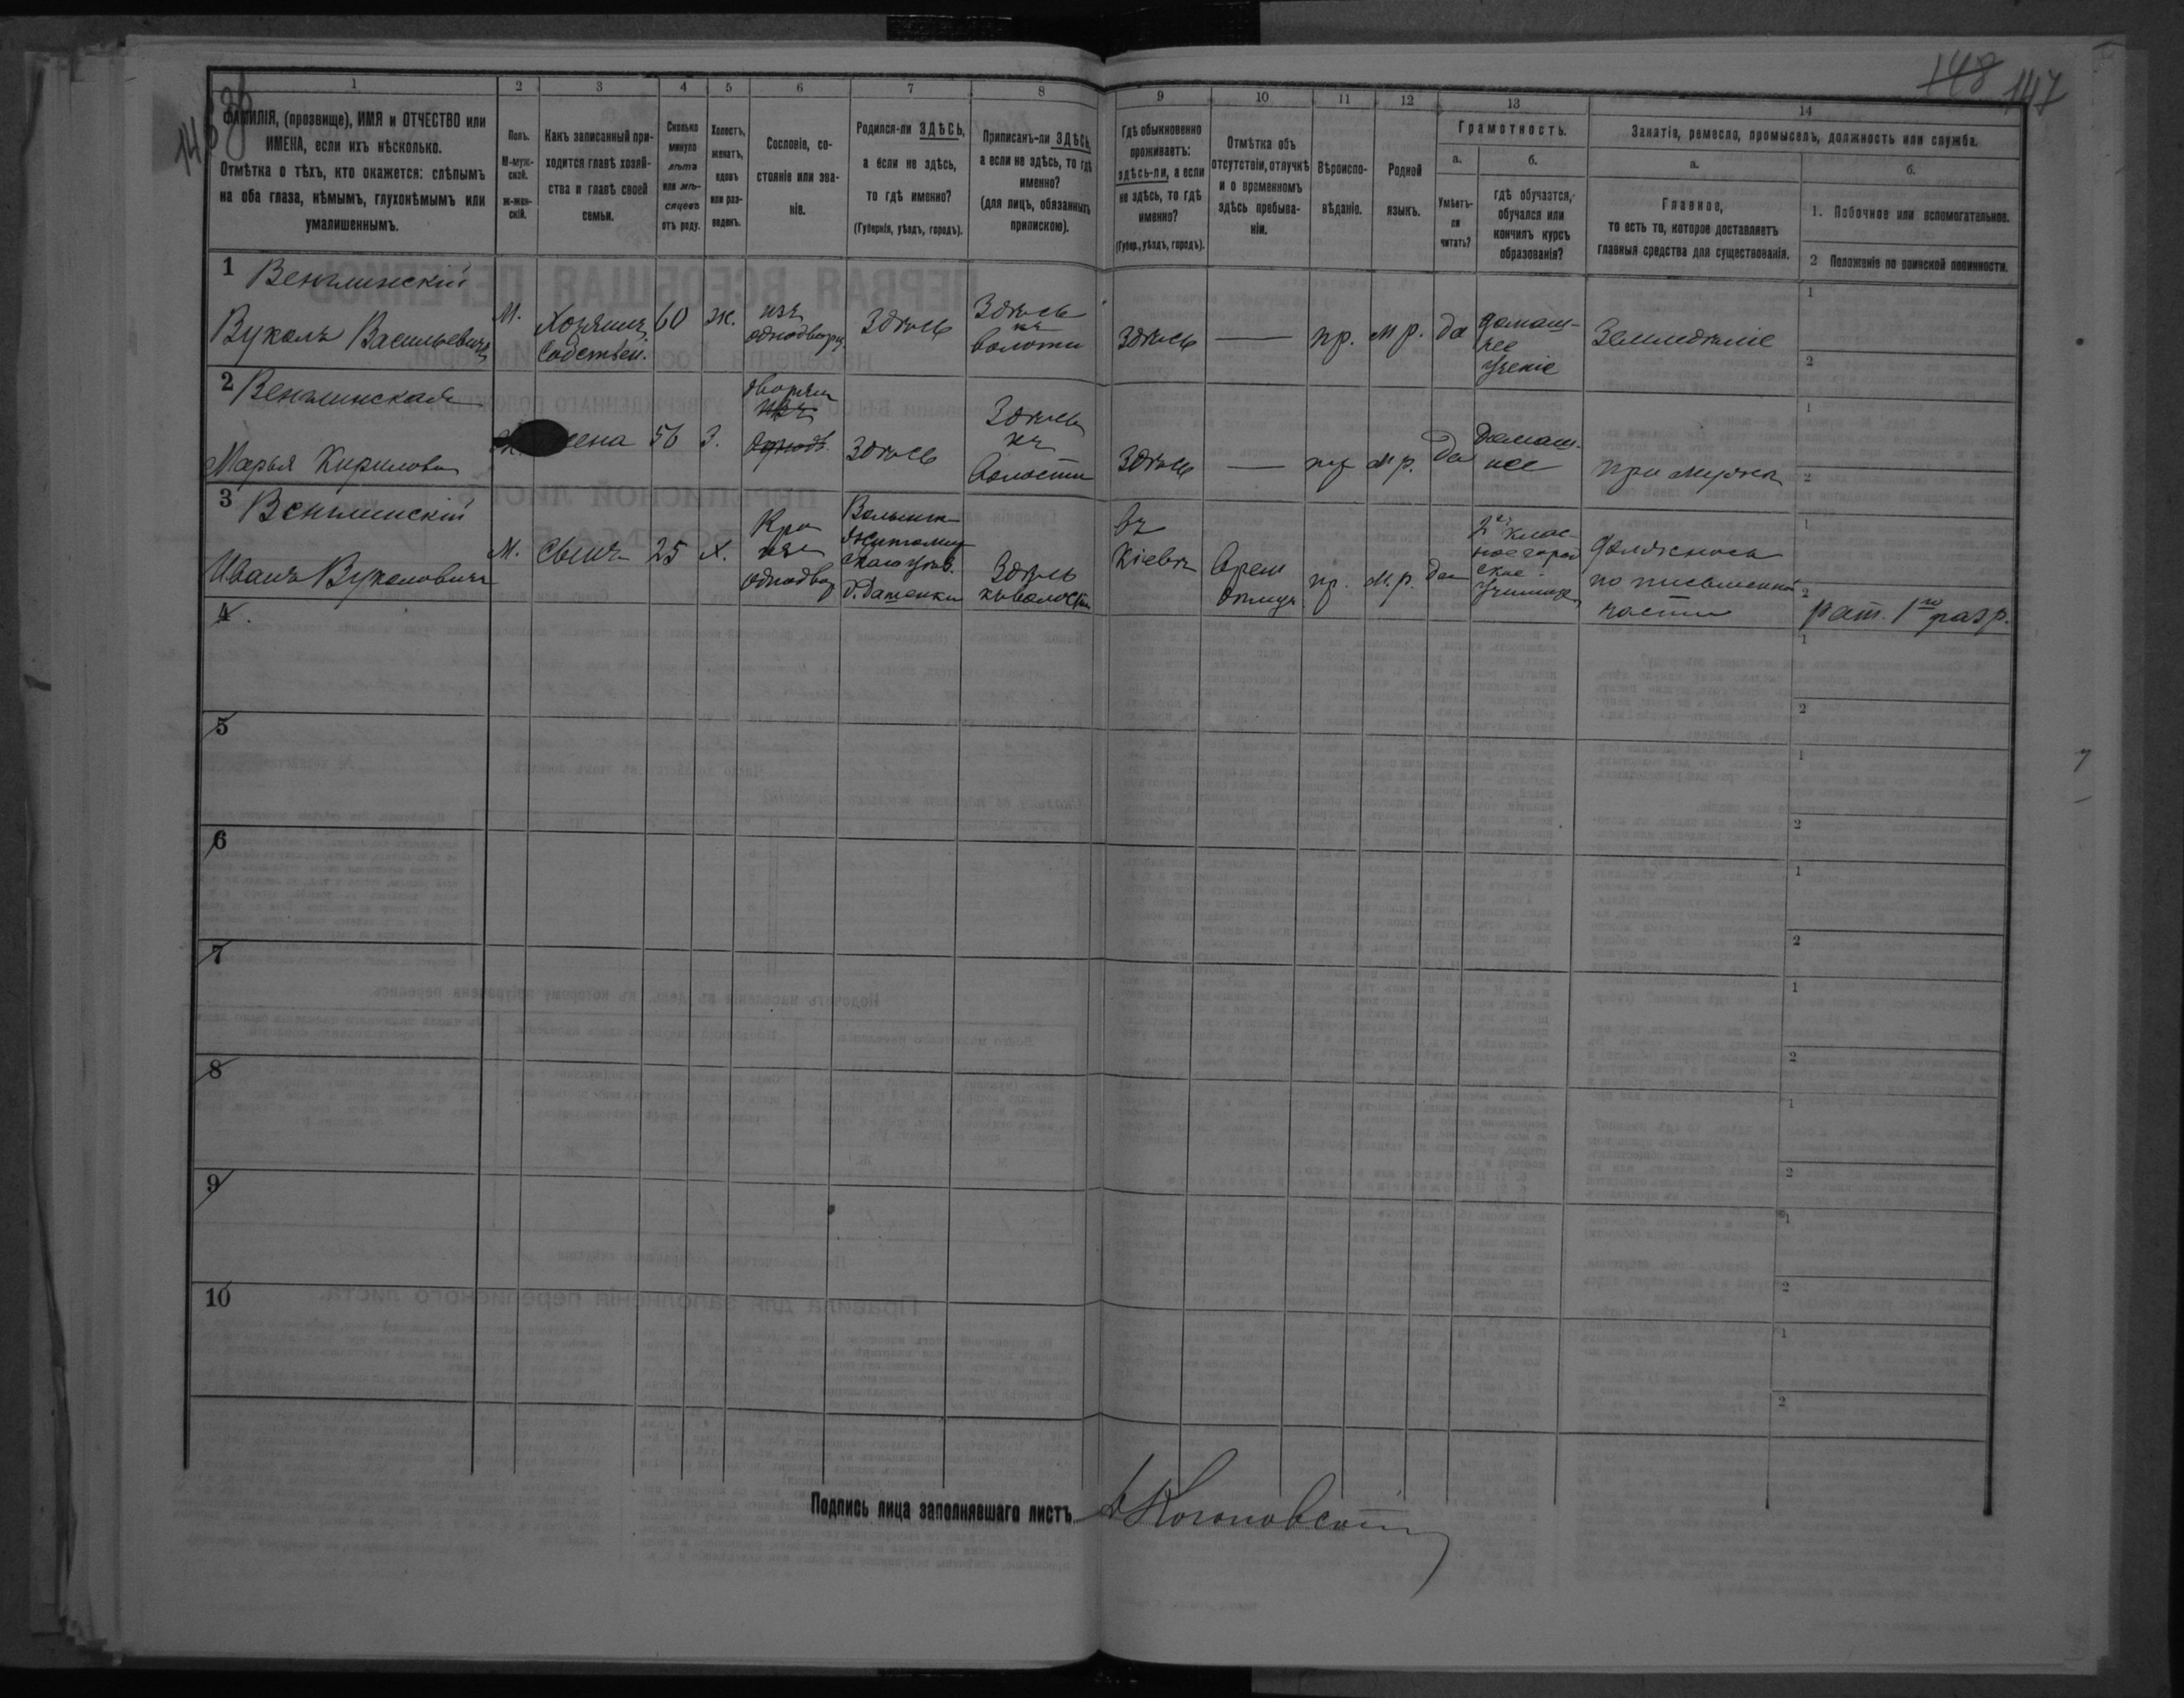 148 147
1 2 3 4 5 6 7 8 9 10 11 12 13 14
ФАМИЛІЯ, (прозвище), ИМЯ и ОТЧЕСТВО или
ИМЕНА, если ихъ нѣсколько.
Отмѣтка о тѣхъ, кто окажется: слѣпымъ
на оба глаза, нѣмымъ, глухонѣмымъ или
умалишеннымъ.
Полъ.
М-муж-
ской.
ж-жен-
скій.
Какъ записанный при-
ходится главѣ хозяй-
ства и главѣ своей
семьи.
Сколько
минуло
лѣтъ
или мѣ-
сяцевъ
отъ роду.
Холостъ,
женатъ,
вдовъ
или раз-
веденъ.
Сословіе, со-
стояніе или зва-
ніе.
Родился-ли ЗДѢСЬ,
а если не здѣсь,
то гдѣ именно?
(Губернія, уѣздъ, городъ).
Приписанъ-ли ЗДѢСЬ,
а если не здѣсь, то гдѣ
именно?
(для лицъ, обязанныхъ
припискою).
Гдѣ обыкновенно
проживаетъ:
здѣсь-ли, а если
не здѣсь, то гдѣ
именно?
(Губер., уѣздъ, городъ).
Отмѣтка объ
отсутствіи, отлучкѣ
и о временномъ
здѣсь пребыва-
ніи.
Вѣроиспо-
вѣданіе.
Родной
языкъ.
Грамотность.
а.
Умѣетъ-
ли
читать?
б.
гдѣ обучается,
обучался или
кончилъ курсъ
образованія?
Занятіе, ремесло, промыселъ, должность или служба.
а.
Главное,
то есть то, которое доставляетъ
главныя средства для существованія.
б.
1. Побочное или вспомогательное.
2 Положеніе по воинской повинности.
1 Венглинскій
Вуколъ Васильевичъ
М.
Хозяинъ
собствен.
60
ж.
изъ
однодворц.
Здѣсь
Здѣсь
къ
волости
Здѣсь
—
пр.
м р.
да
домаш-
нее
ученіе
Земледѣліе
1
2
2 Венглинская
Марья Кирилова
жена
56
З.
дворян
изъ
однод.
Здѣсь
Здѣсь
къ
волости
Здѣсь
—
пр
м р.
да
домаш-
нее
при мужѣ
1
2
3 Венглинскій
Иванъ Вуколовичъ
М.
сынъ
25
х.
Кре
изъ
однодвор
Волынск
Житомир
скаго уѣзд.
Здѣсь
къ волости
въ
Кіевѣ
Врем
отлуч
пр.
м. р.
да
2х клас-
ное город
ское
училище
должность
по письменной
части
1
2
рат. 1го разр.
4
1
2
5
1
2
6
1
2
7
1
2
8
1
2
9
1
2
10
1
2
Подпись лица заполнявшаго листъ